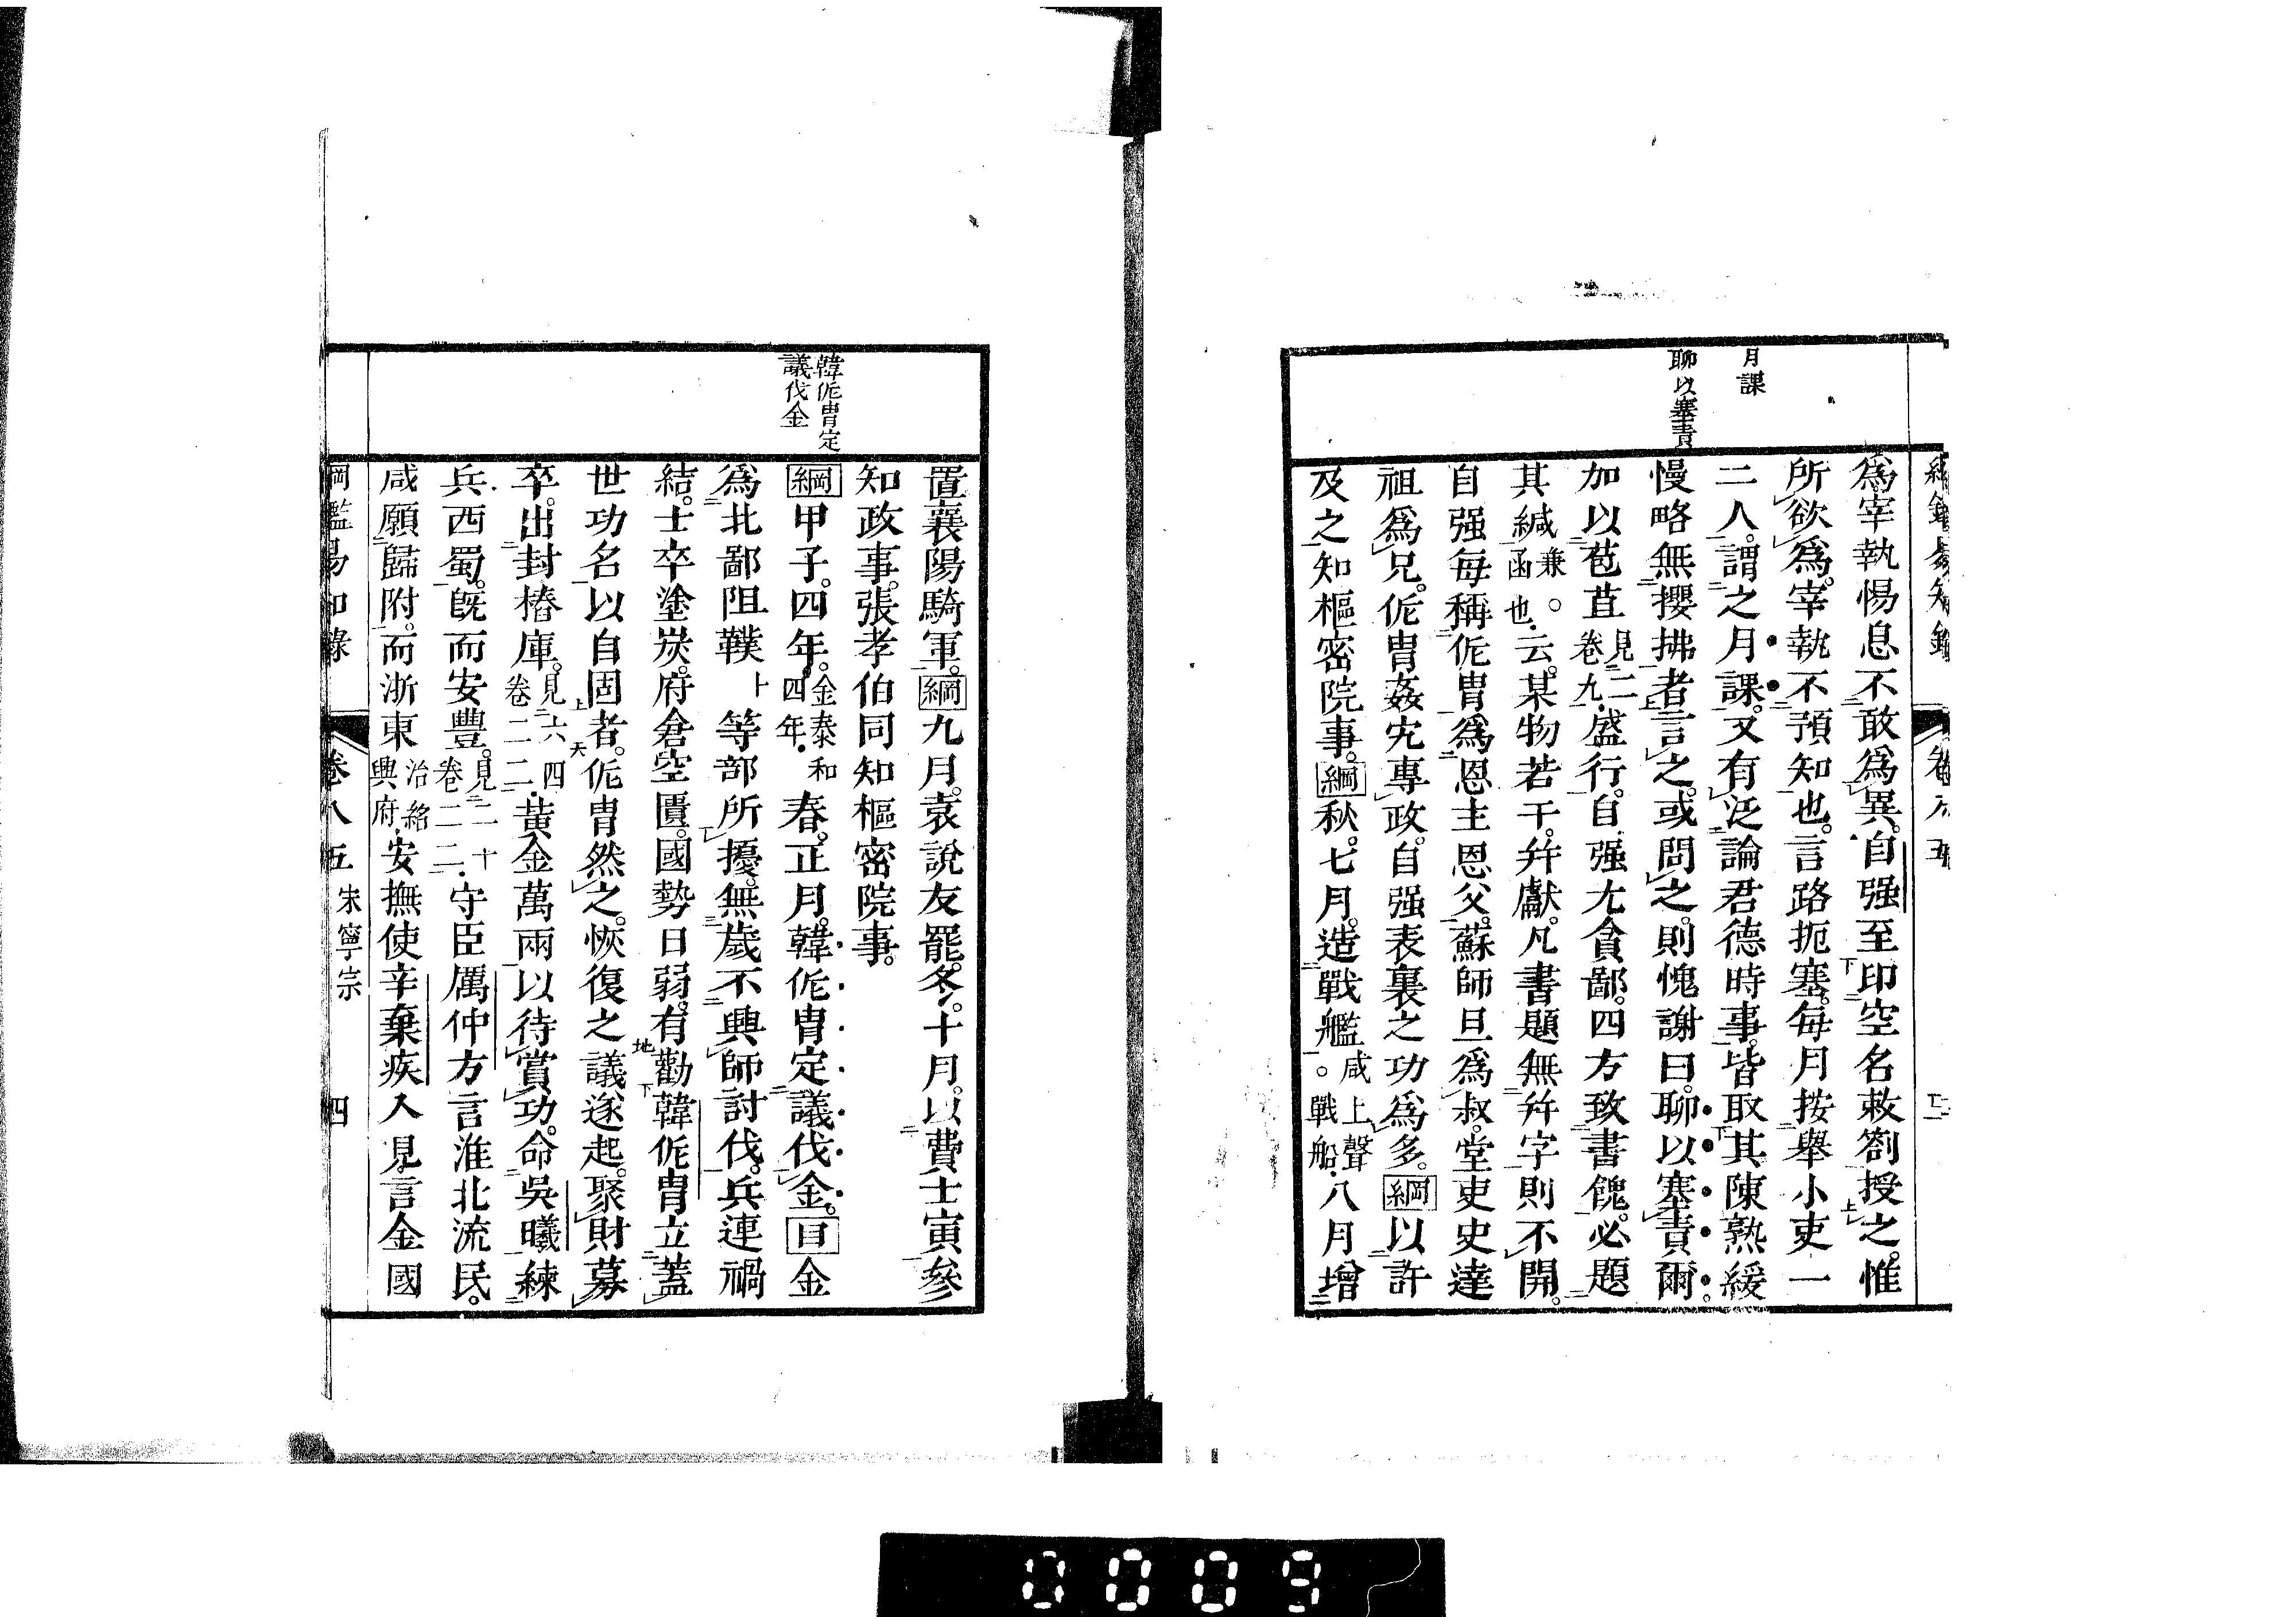 月課
聊以塞責
爲宰執惕息不敢爲異。自强至印空名敕劄授之。惟
所欲爲。宰執不預知也。言路扼塞。每月按舉小吏一
二人。謂之月課。又有泛論君德時事。皆取其陳熟緩
慢略無攖拂者言之。或問之。則愧謝曰。聊以塞責爾。
加以苞苴見二卷九。盛行。自强尤貪鄙。四方致書餽。必題
其緘兼。函也。云。某物若干。幷獻。凡書題無幷字則不開。
自强每稱侂胄爲恩主恩父。蘇師旦爲叔。堂吏史達
祖爲兄。侂胄姦宄專政。自强表裏之功爲多。綱以許
及之知樞密院事。綱秋。七月。造戰艦咸上聲。戰船。八月增
韓侂胄定
議伐金
置襄陽騎軍。綱九月。袁說友罷。冬。十月。以費士寅參
知政事。張孝伯同知樞密院事。
綱甲子。四年。金泰和四年。春。正月。韓侂胄定議伐金。目金
爲北鄙阻䪁卜等部所擾。無歲不興師討伐。兵連禍
結。士卒塗炭。府倉空匱。國勢日弱。有勸韓侂胄立蓋
世功名以自固者。侂胄然之。恢復之議遂起。聚財募
卒。出封樁庫。見六四卷二二。黃金萬兩以待賞功。命吳曦練
兵西蜀。旣而安豐。見二十卷二二。守臣厲仲方言淮北流民。
咸願歸附。而浙東治紹興府。安撫使辛棄疾入見。言金國
綱鑑易知錄 卷八五 宋寧宗 四